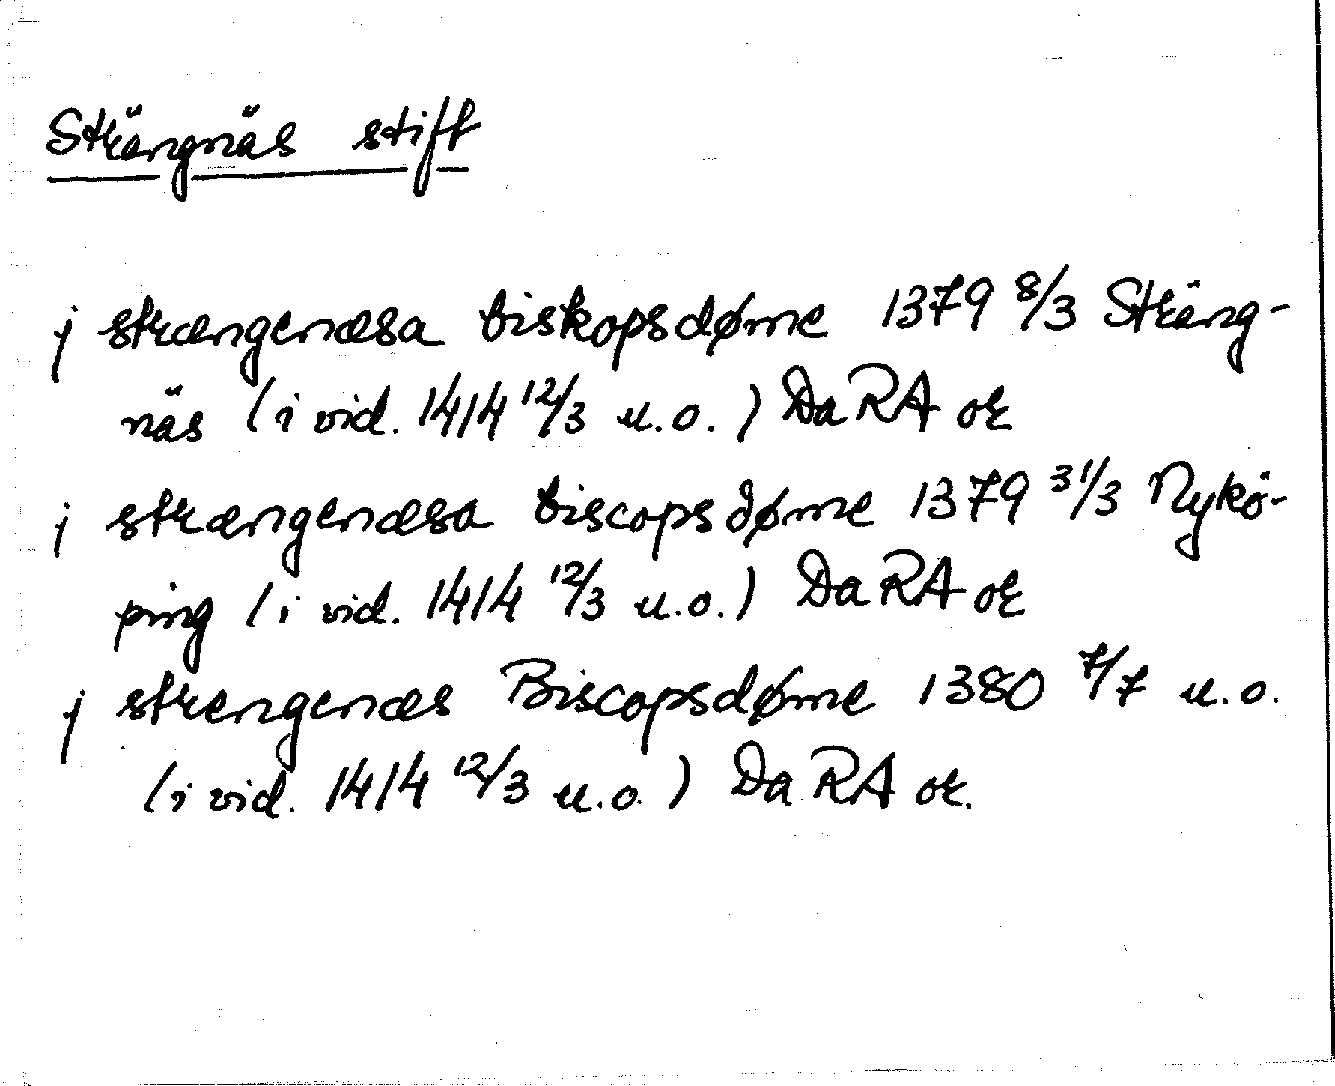 Strängnäs stift
j strængenæsa biskopsdøme 1379 8/3 Sträng-
näs (i vid. 1414 12/3 u.o.) Da RA or
j strængenæsa biscopsdøme 1379 31/3 Nykö-
ping (i vid. 1414 12/3 u.o.) Da RA or
j strengenæs Biscopsdøme 1380 7/7 u.o.
(i vid. 1414 12/3 u.o.) Da RA or.